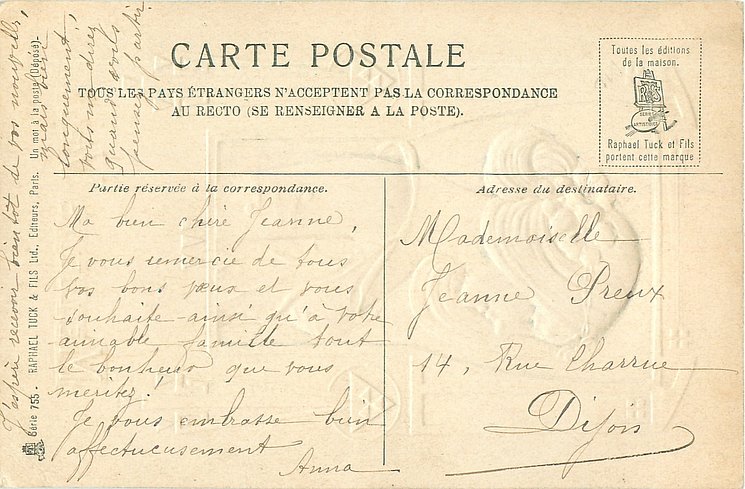 CARTE POSTALE
TOUS LES PAYS ÉTRANGERS N'ACCEPTENT PAS LA CORRESPONDANCE
AU RECTO (SE RENSEIGNER A LA POSTE).
Toutes les éditions
de la maison.
Raphael Tuck et Fils
portent cette marque
Partie réservée à la correspondance.
Ma bien chère Jeanne,
Je vous remercie de tous
vos bons vœux et vous
souhaite ainsi qu'à votre
aimable famille tout
le bonheur que vous
méritez!
Je vous embrasse bien
affectueusement
Anna
Adresse du destinataire.
Mademoiselle
Jeanne Preux
14, Rue Charrue
Dijon
Série 755. RAPHAEL TUCK & FILS Ltd., Editeurs, Paris. Un mot à la poste (Déposé)
J'espère recevoir bientôt de vos nouvelles,
mais
longuement,
vous me direz
quand
pensez partir